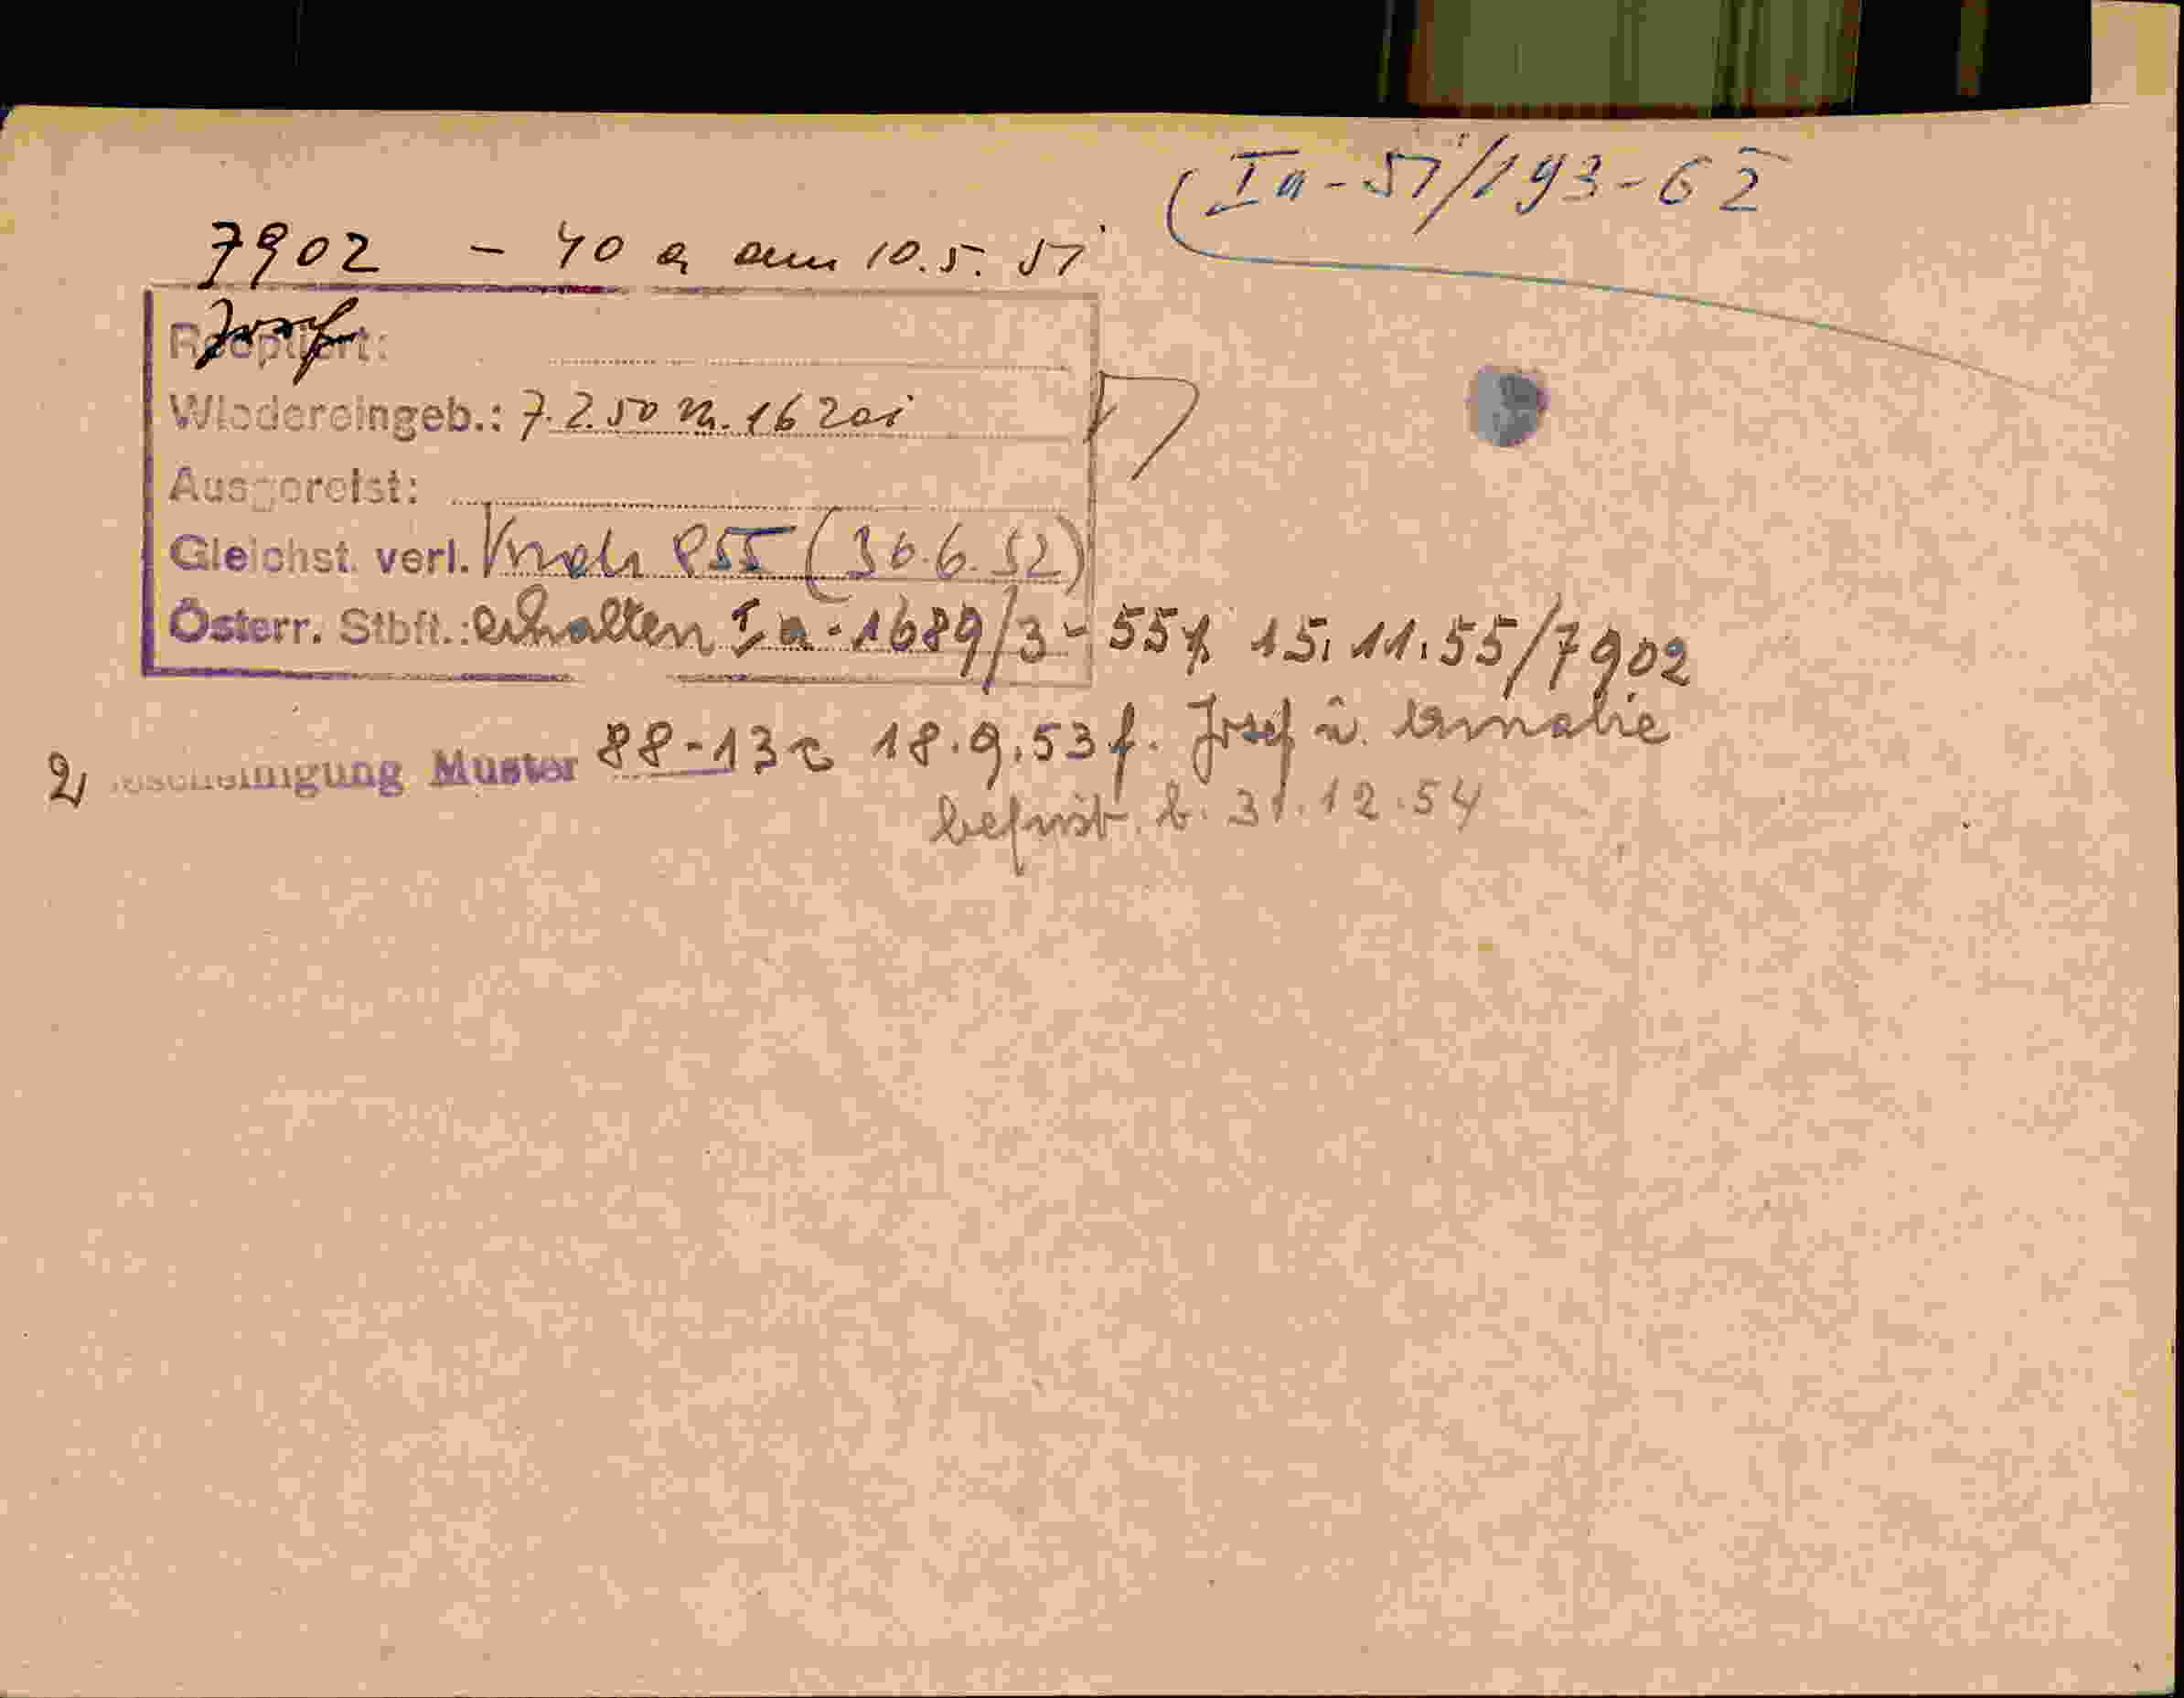 Ia - 51/193-62
7902 - 40 a am 10.5.51
Josef
Reoptiert:
Wiedereingeb.: 7.2.50 16
Ausgereist:
Gleichst. verl. (30.6.52)
Österr. Stbft.: erhalten Ia-1689/3-55 15.11.55/7902
2 Bescheinigung Muster 88-13c 18.9.53 f. Josef u. Amalie
befrist. b. 31.12.54